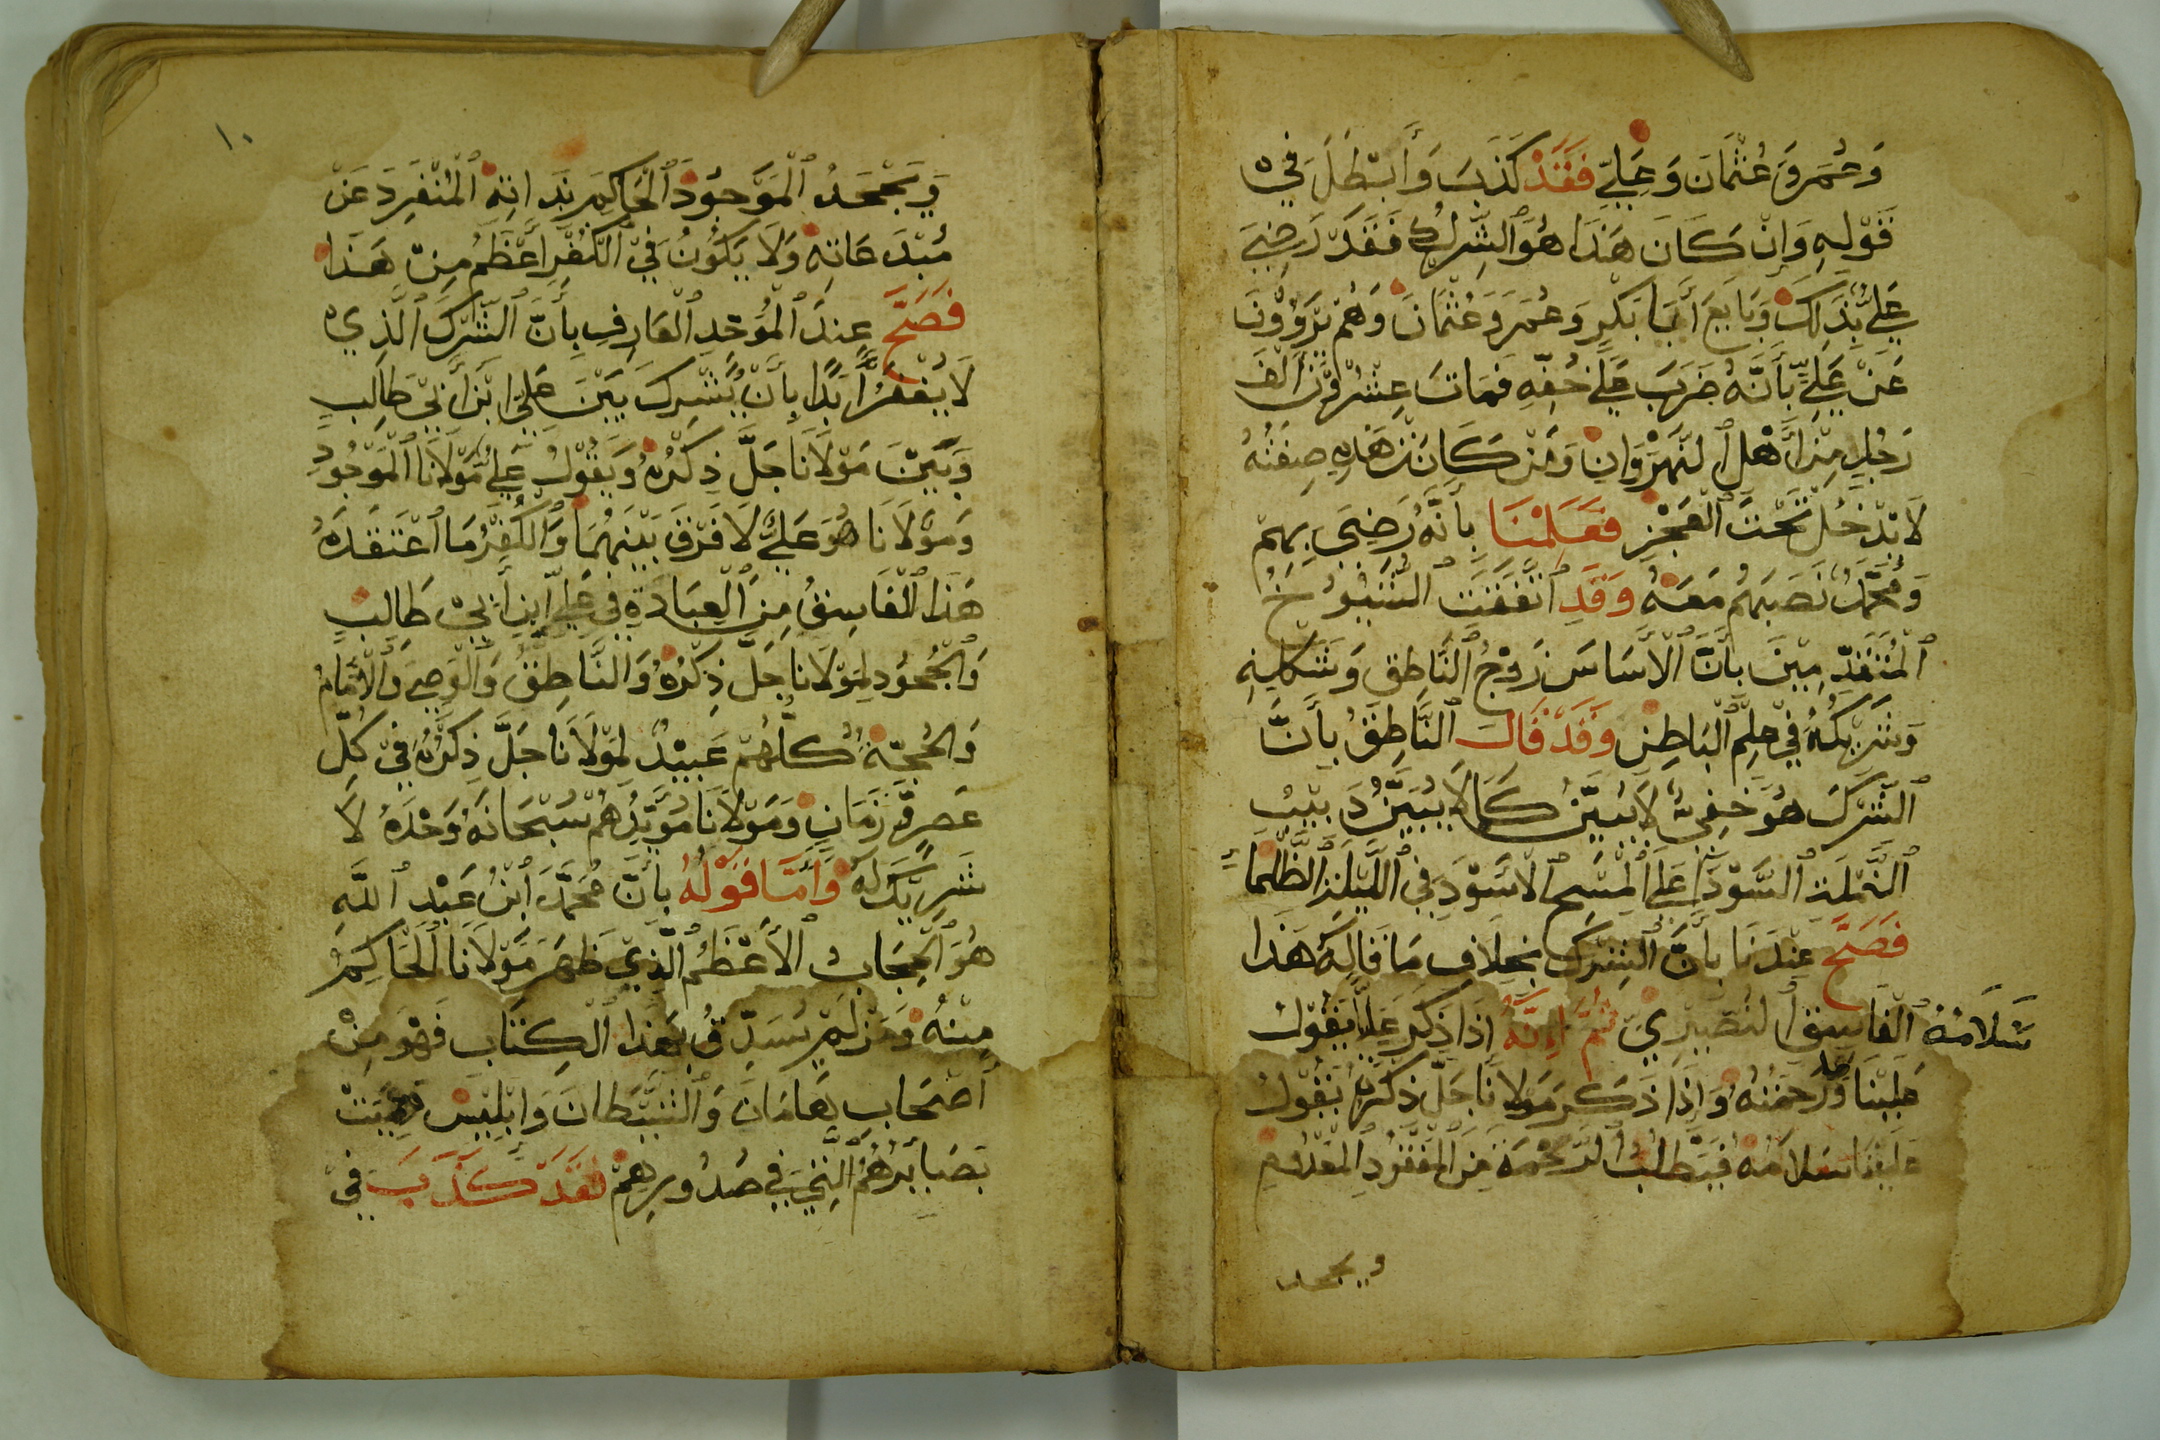 وَعُمَرَ وَعُثْمَانَ وَعَلِيّ فَقَدْ كَذَبَ وَأَبْطَلَ فِي
قَوْلِهِ وَإِنْ كَانَ هَذَا هُوَ الشِّرْكُ فَقَدْ رَضِيَ
عَلِيٌّ بِذَلِكَ وَبَايَعَ أَبَا بَكْرٍ وَعُمَرَ وَعُثْمَانَ وَهُمْ يَرْوُونَ
عَنْ عَلِيٍّ بِأَنَّهُ ضَرَبَ عَلَى خُفِّهِ فَمَاتَ عِشْرُونَ أَلْفَ
رَجُلٍ مِنْ أَهْلِ النَّهْرَوَانِ وَمَنْ كَانَتْ هَذِهِ صِفَتُهُ
لَا يَدْخُلُ تَحْتَ الْعَجْزِ فَعَلِمْنَا بِأَنَّهُ رَضِيَ بِهِمْ
وَمُحَمَّدٌ نَصَبَهُمْ مَعَهُ وَقَدِ اتَّفَقَتِ الشُّيُوخُ
الْمُتَقَدِّمِينَ بِأَنَّ الْأَسَاسَ زَوْجُ النَّاطِقِ وَشَكْلِيهِ
وَشَرِيْكُهُ فِي عِلْمِ الْبَاطِنِ وَقَدْ قَالَ النَّاطِقُ بِأَنَّ
الشِّرْكَ هُوَ خَفِيٌّ لَا يُبَيَّنُ كَمَا لَا يُبَيَّنُ دَبِيْبُ
النَّمْلَةِ السَّوْدَاءِ عَلَى الْمِسْحِ الْأَسْوَدِ فِي اللَّيْلَةِ الظَّلْمَاءِ
فَصَحَّ عِنْدَنَا بِأَنَّ الشِّرْكَ بِخِلَافِ مَا قَالَهُ هَذَا
الْفَاسِقُ النُّصَيْرِيّ ثُمَّ إِنَّهُ إِذَا ذَكَرَ عَلِيًّا يَقُولُ سَلَامُهُ
عَلَيْنَا وَرَحْمَتُهُ وَإِذَا ذَكَرَ مَوْلَانَا جَلَّ ذِكْرُهُ يَقُولُ
عَلَيْنَا سَلَامُهُ فَيَطْلُبُ الرَّحْمَةَ مِنَ الْمَفْقُودِ الْمَعْدُومِ
ويجحد
١٠
وَيَجْحَدُ الْمَوْجُودَ الْحَاكِمَ بِذَاتِهِ الْمُنْفَرِدَ عَنْ
مُبْدَعَاتِهِ وَلَا يَكُونُ فِي الْكُفْرِ أَعْظَمُ مِنْ هَذَا
فَصَحَّ عِنْدَ الْمُوَحِّدِ الْعَارِفِ بِأَنَّ الشِّرْكَ الَّذِي
لَا يُغْفَرُ أَبَدًا بِأَنْ يُشْرِكَ بَيْنَ عَلِيِّ ابْنِ أَبِيْ طَالِبٍ
وَبَيْنَ مَوْلَانَا جَلَّ ذِكْرُهُ وَيَقُولُ عَلِيٌّ مَوْلَانَا الْمَوْجُودِ
وَمَوْلَانَا هُوَ عَلِيٌّ لَا فَرْقَ بَيْنَهُمَا وَالْكُفْرُ مَا اعْتَقَدَهُ
هَذَا الْفَاسِقُ مِنَ الْعِبَادَةِ فِي عَلِيِّ ابْنِ أَبِيْ طَالِبٍ
وَالْجُحُودِ لِمَوْلَانَا جَلَّ ذِكْرُهُ وَالنَّاطِقُ وَالْوَصِيُّ وَالْإِمَامُ
وَالْحُجَّةُ كُلُّهُمْ عَبِيْدٌ لِمَوْلَانَا جَلَّ ذِكْرُهُ فِيْ كُلِّ
عَصْرٍ وَزَمَانٍ وَمَوْلَانَا مُؤَيِّدُهُمْ سُبْحَانَهُ وَحْدَهُ لَا
شَرِيْكَ لَهُ وَأَمَّا قَوْلُهُ بِأَنَّ مُحَمَّدَ ابْنَ عَبْدِ اللَّهِ
هُوَ الْحِجَابُ الْأَعْظَمُ الَّذِيْ ظَهَرَ مَوْلَانَا الْحَاكِمُ
مِنْهُ وَمَنْ لَمْ يُسَدِّقُ بِهَذَا الْكِتَابِ فَهُوَ مِنْ
أَصْحَابِ هَامَانَ وَالشَّيْطَانَ وَإِبْلِيْسَ عَمِيَتْ
بَصَايِرُهُمُ الَّتِيْ فِي صُدُورِهِمْ فَقَدْ كَذَبَ فِيْ